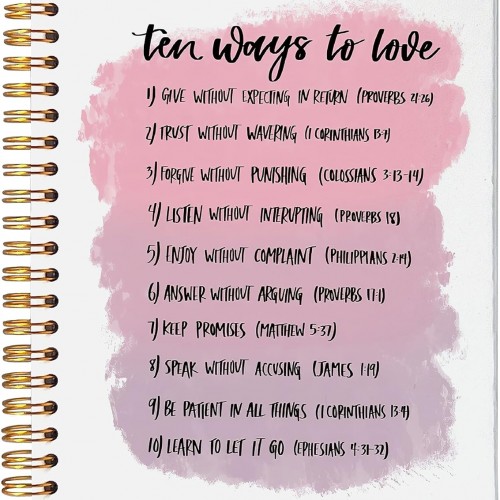 ten ways to love
1) GIVE WITHOUT EXPECTING IN RETURN (PROVERBS 21:26)
2) TRUST WITHOUT WAVERING (1 CORINTHIANS 13:7)
3) FORGIVE WITHOUT PUNISHING (COLOSSIANS 3:13-14)
4) LISTEN WITHOUT INTERUPTING (PROVERBS 18)
5) ENJOY WITHOUT COMPLAINT (PHILIPPIANS 2:14)
6) ANSWER WITHOUT ARGUING (PROVERBS 17:1)
7) KEEP PROMISES (MATTHEW 5:37)
8) SPEAK WITHOUT ACCUSING (JAMES 1:19)
9) BE PATIENT IN ALL THINGS (1 CORINTHIANS 13:4)
10) LEARN TO LET IT GO (EPHESIANS 4:31-32)